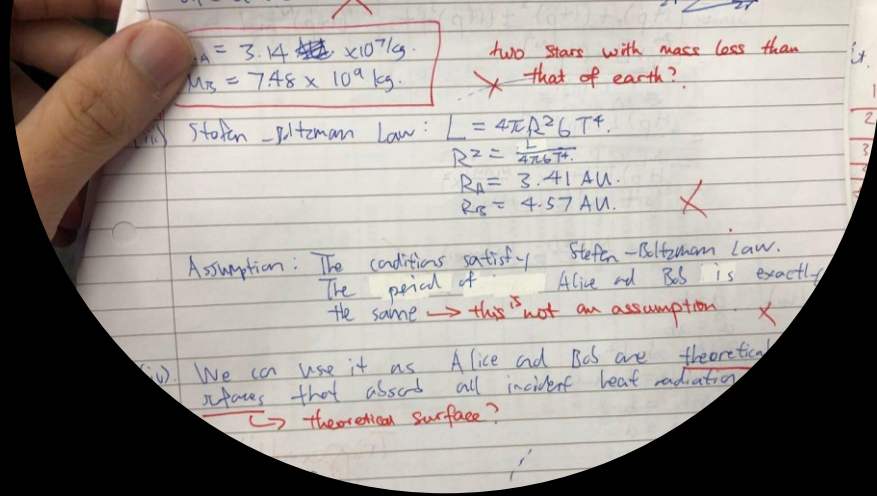 A = 3.14 x10⁷kg.
two stars with mass less than
MB = 7.48 x 10⁹ kg.
that of earth?
Stefen-Boltzman Law: L = 4πR²6T⁴.
R² = L/4π6T⁴.
RA = 3.41 AU.
RB = 4.57 AU.
Assumption: The conditions satisfy Stefen-Boltzman Law.
The period of Alice and Bob is exactly
the same → this is not an assumption.
(iv). We can use it as Alice and Bob are theoretical
rfaces that absorb all incident heat radiation
↳ theoretical surface?
1
2
3